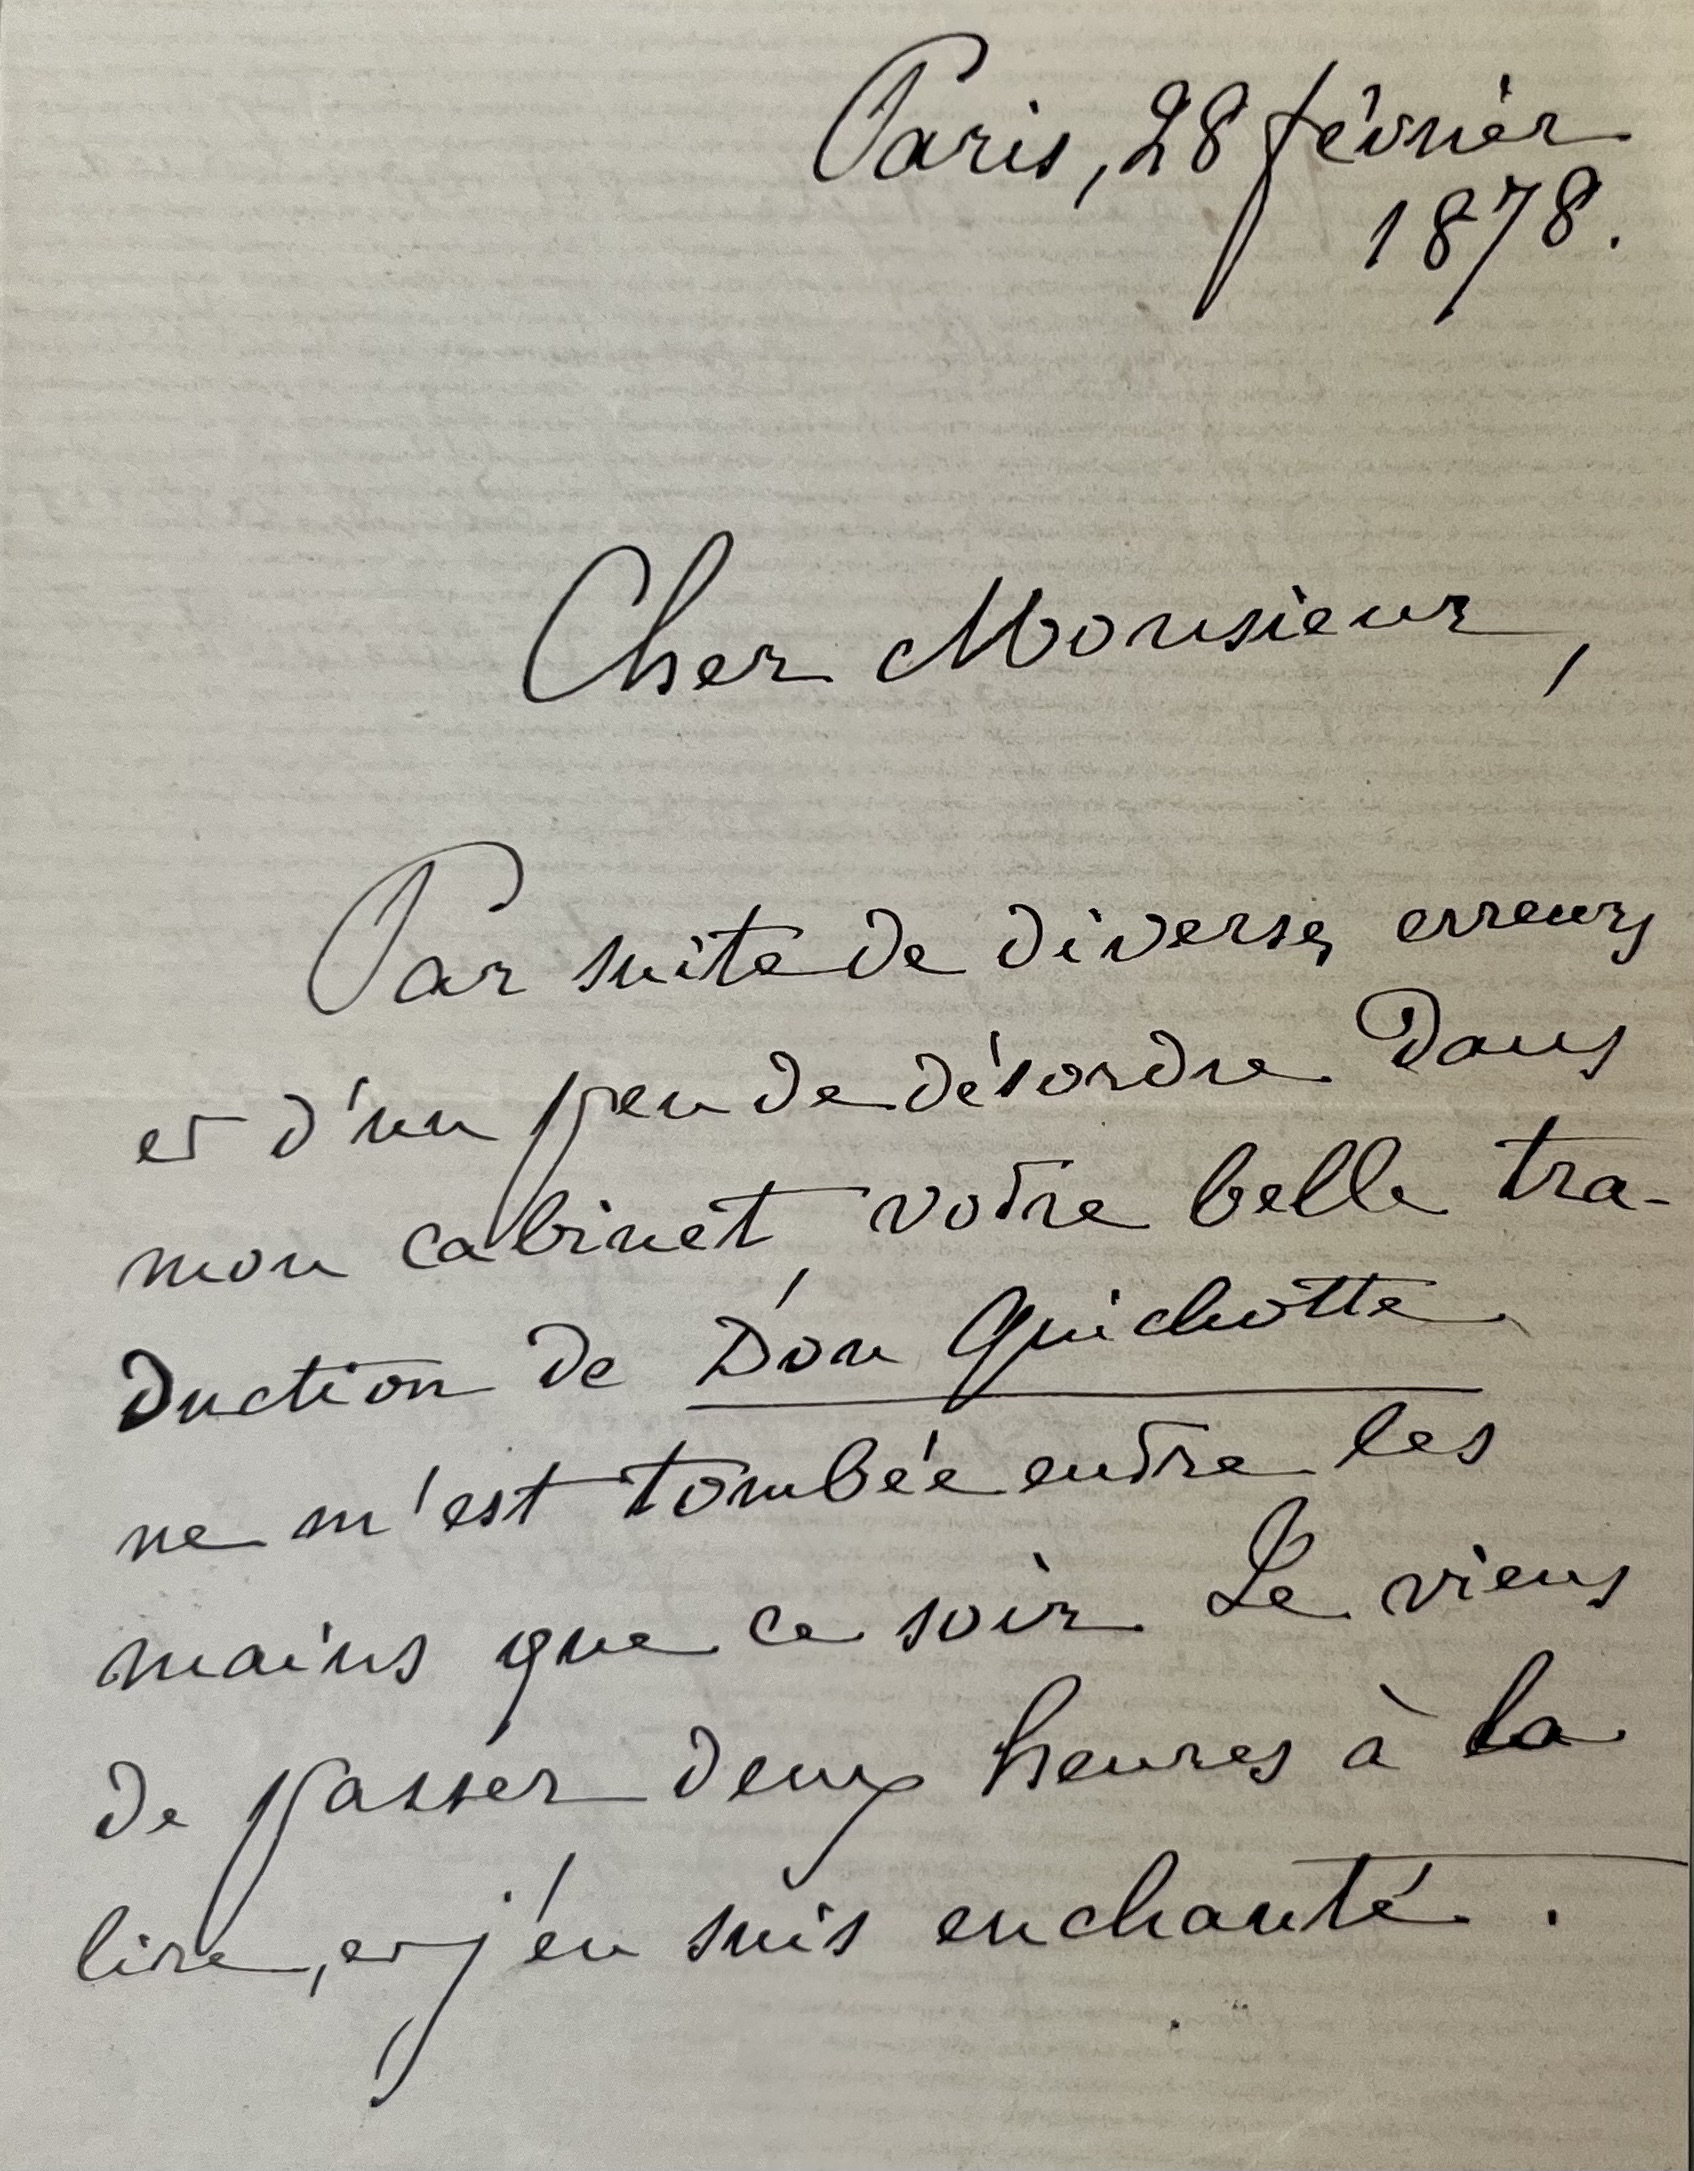 Paris, 28 février
1878.
Cher Monsieur,
Par suite de diverses erreurs
et d'un peu de désordre dans
mon cabinet, votre belle tra-
duction de Don Quichotte
ne m'est tombée entre les
mains que ce soir. Je viens
de passer deux heures à la
lire, et j'en suis enchanté.